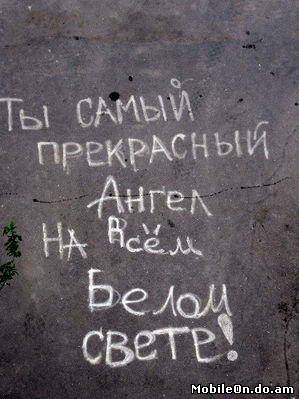 Ты самый
прекрасный
Ангел
на Всём
Белом
свете!
MobileOn.do.am